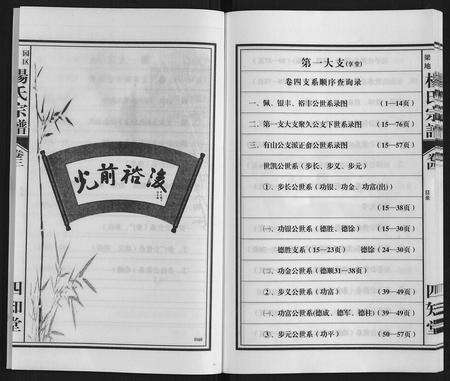 第一大支(享堂)
卷四支系顺序查询录
一、佩、银丰、裕丰公世系录图 (1—14页)
二、第一支大支聚久公支下世系录图 (15—76页)
三、有山公支派正畲公世系录图 (15—57页)
世凯公世系(步长、步义、步元)
①、步长公世系(功银、功金、功富(出))
(15—38页)
㈠、功银公世系(德胜、德馀) (15—30页)
德胜支系(15—23页) 德馀(24—30页)
㈡、功金公世系(德顺31—38页)
②、步义公世系(功富) (39—49页)
㈠、功富公世系(德成、德军、德柱)(39—49页)
③、步元公世系(功平) (50—57页)
梁地
楊氏宗譜
卷四
目录
四知堂
园区
楊氏宗譜
卷三
四知堂
光前裕後